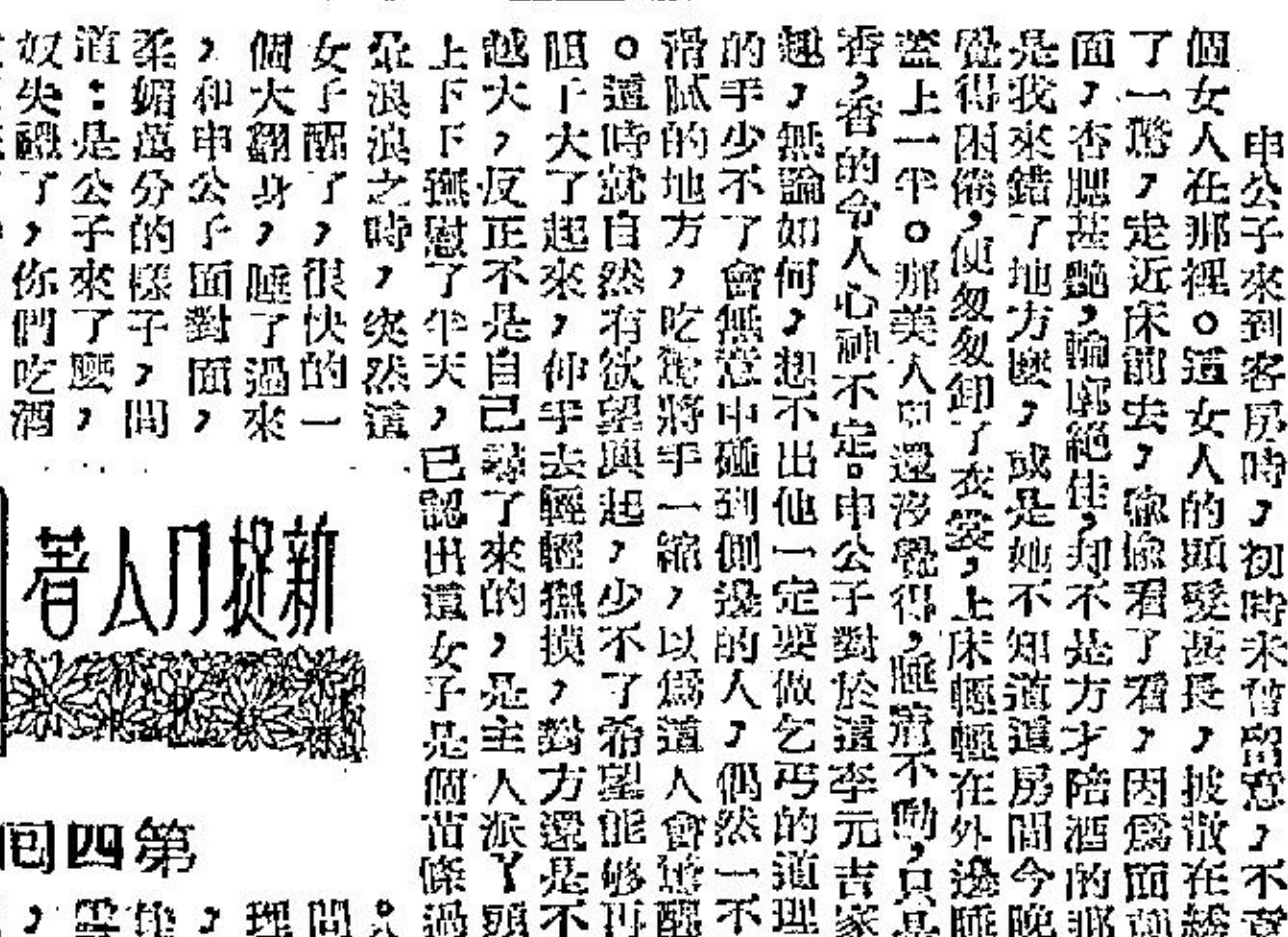 申公子來到客房時，初時未曾留意，不
個女人在那裡。這女人的頭髮甚長，披散在
了一驚，走近床前去，偸偸看了看，因爲面前
面，杏腮甚艷，輪廓絕佳，却不是方才陪酒的那
是我來錯了地方麼，或是她不知道這房間今晚
覺得困倦，便匆匆卸了衣裳，上床輕輕在外邊睡
蓋上一半。那美人還沒覺得，睡着不動，只是
香，香的令人心神不定。申公子對於這李元吉家
趣，無論如何，想不出他一定要做乞丐的道理
的手少不了會無意中碰到側邊的人，偶然一不
滑膩的地方，吃驚將手一縮，以爲這人會驚醒
。這時就自然有欲望興起，少不了希望能够再
胆子大了起來，伸手去輕輕撫摸，對方還是不
越大，反正不是自己尋了來的，是主人派丫頭
上下下撫慰了半天，已認出這女子是個苗條過
浪浪之時，突然這
女子醒了，很快的一
個大翻身，睡了過來
，和申公子面對面，
柔媚萬分的樣子，問
道：是公子來了麼，
奴失禮了，你們吃酒
新捉刀人著
第四回